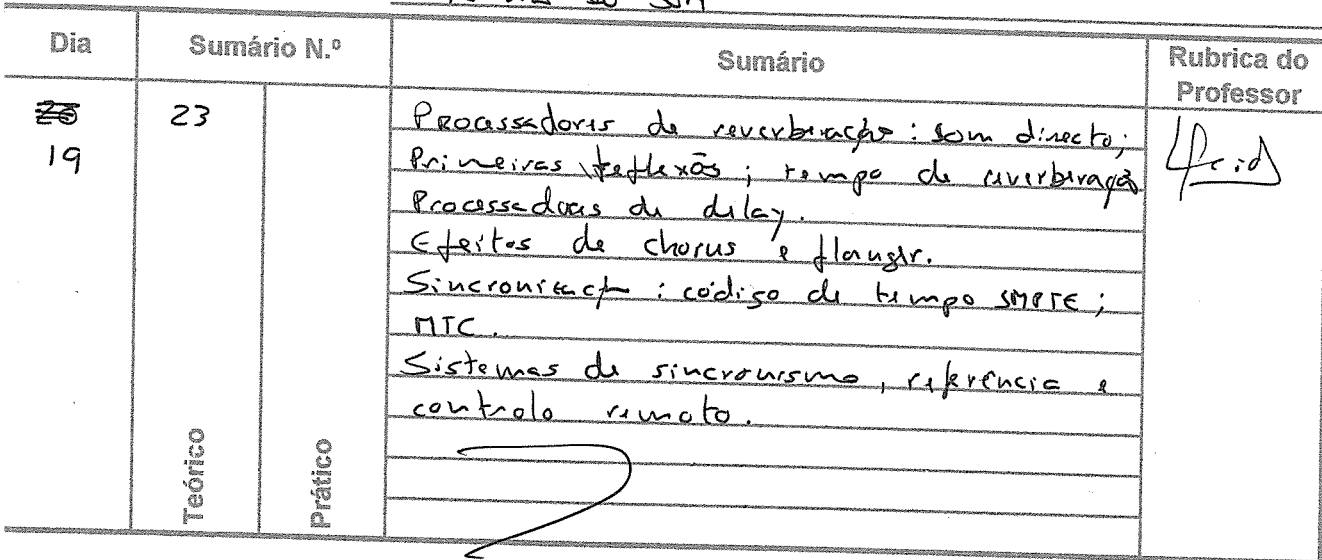 do som
Dia Sumário N.º Sumário Rubrica do Professor
23 Processadores de reverberação : som directo;
19 Primeiras reflexões ; tempo de reverberação
Processadores de delay.
Efeitos de chorus e flanger.
Sincronização : código de tempo SMPTE ;
MTC.
Sistemas de sincronismo, referência e
controlo remoto.
Teórico
Prático